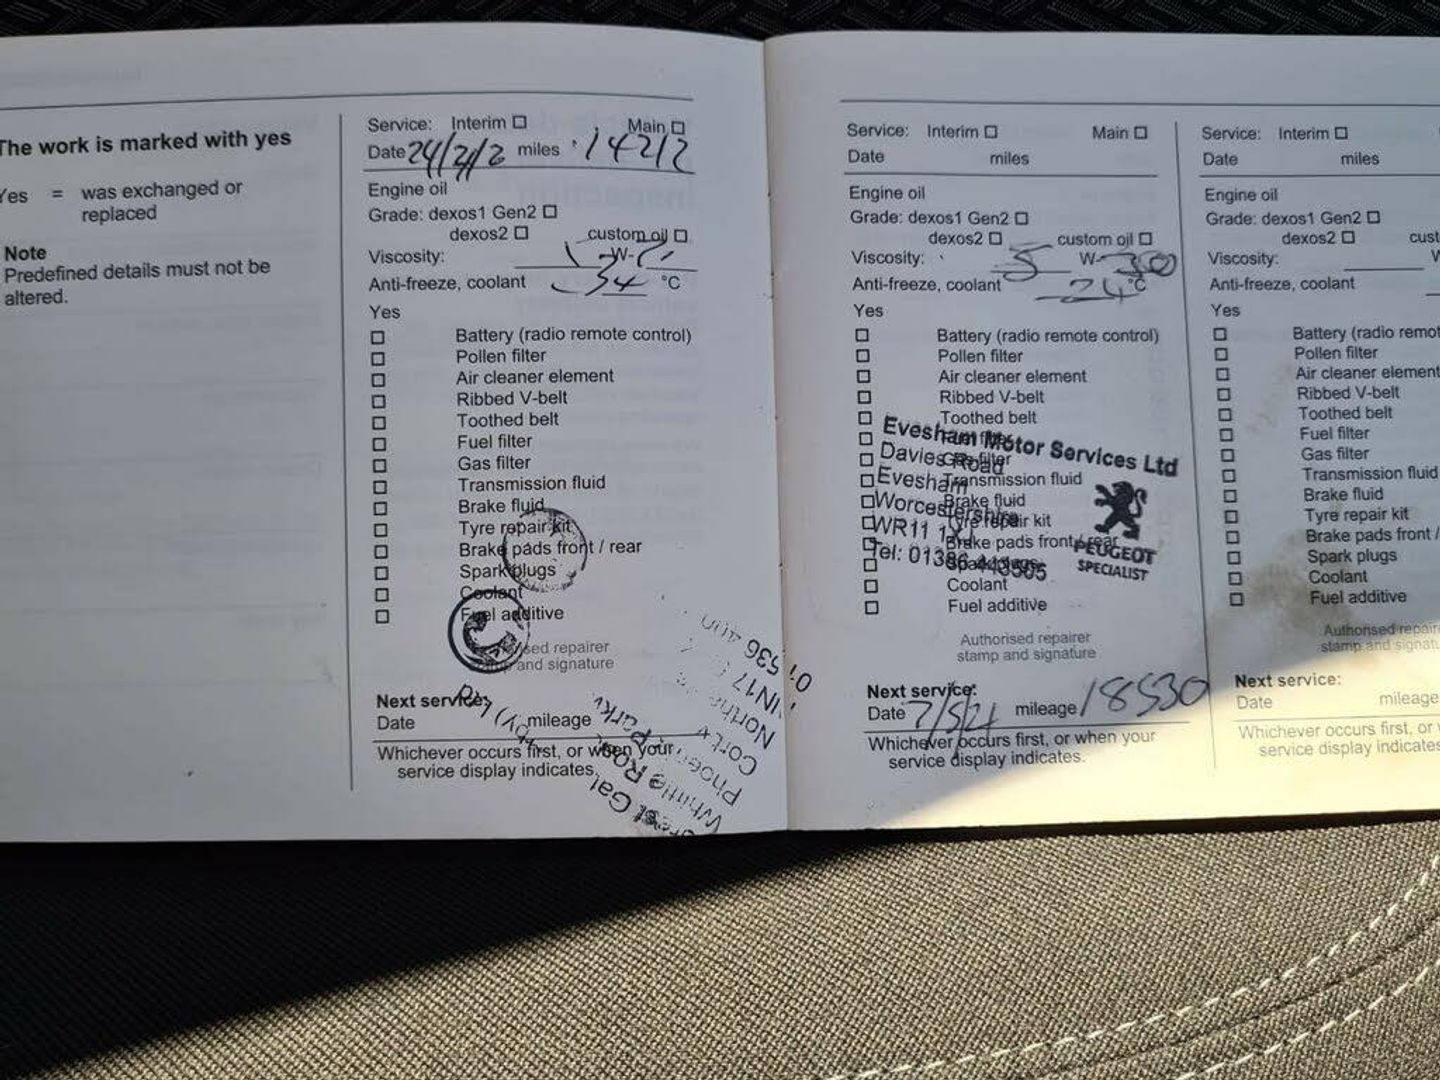 The work is marked with yes
Yes = was exchanged or
replaced
Note
Predefined details must not be
altered.
Service: Interim ☐ Main ☐
Date miles 14212
Engine oil
Grade: dexos1 Gen2 ☐
dexos2 ☐ custom oil ☐
Viscosity: W-
Anti-freeze, coolant -34 °C
Yes
☐ Battery (radio remote control)
☐ Pollen filter
☐ Air cleaner element
☐ Ribbed V-belt
☐ Toothed belt
☐ Fuel filter
☐ Gas filter
☐ Transmission fluid
☐ Brake fluid
☐ Tyre repair kit
☐ Brake pads front / rear
☐ Spark plugs
☐ Coolant
☐ Fuel additive
repairer
and signature
Ltd
Whittle Road
Phoenix Parkway
Corby
NN17
01536
Next service:
Date mileage
Whichever occurs first, or when your
service display indicates.
Service: Interim ☐ Main ☐
Date miles
Engine oil
Grade: dexos1 Gen2 ☐
dexos2 ☐ custom oil ☐
Viscosity: 5 W-30
Anti-freeze, coolant -24 °C
Yes
☐ Battery (radio remote control)
☐ Pollen filter
☐ Air cleaner element
☐ Ribbed V-belt
☐ Toothed belt
☐ Fuel filter
☐ Gas filter
☐ Transmission fluid
☐ Brake fluid
☐ Tyre repair kit
☐ Brake pads front / rear
☐ Spark plugs
☐ Coolant
☐ Fuel additive
Evesham Motor Services Ltd
Davies Road
Evesham
Worcestershire
WR11
Tel: 01386 443505
PEUGEOT
SPECIALIST
Authorised repairer
stamp and signature
Next service:
Date 7/5/21 mileage 18530
Whichever occurs first, or when your
service display indicates.
Service: Interim ☐
Date miles
Engine oil
Grade: dexos1 Gen2 ☐
dexos2 ☐ cust
Viscosity: W
Anti-freeze, coolant
Yes
☐ Battery (radio remot
☐ Pollen filter
☐ Air cleaner element
☐ Ribbed V-belt
☐ Toothed belt
☐ Fuel filter
☐ Gas filter
☐ Transmission fluid
☐ Brake fluid
☐ Tyre repair kit
☐ Brake pads front /
☐ Spark plugs
☐ Coolant
☐ Fuel additive
Authorised repair
stamp and signat
Next service:
Date mileage
Whichever occurs first, or
service display indicates